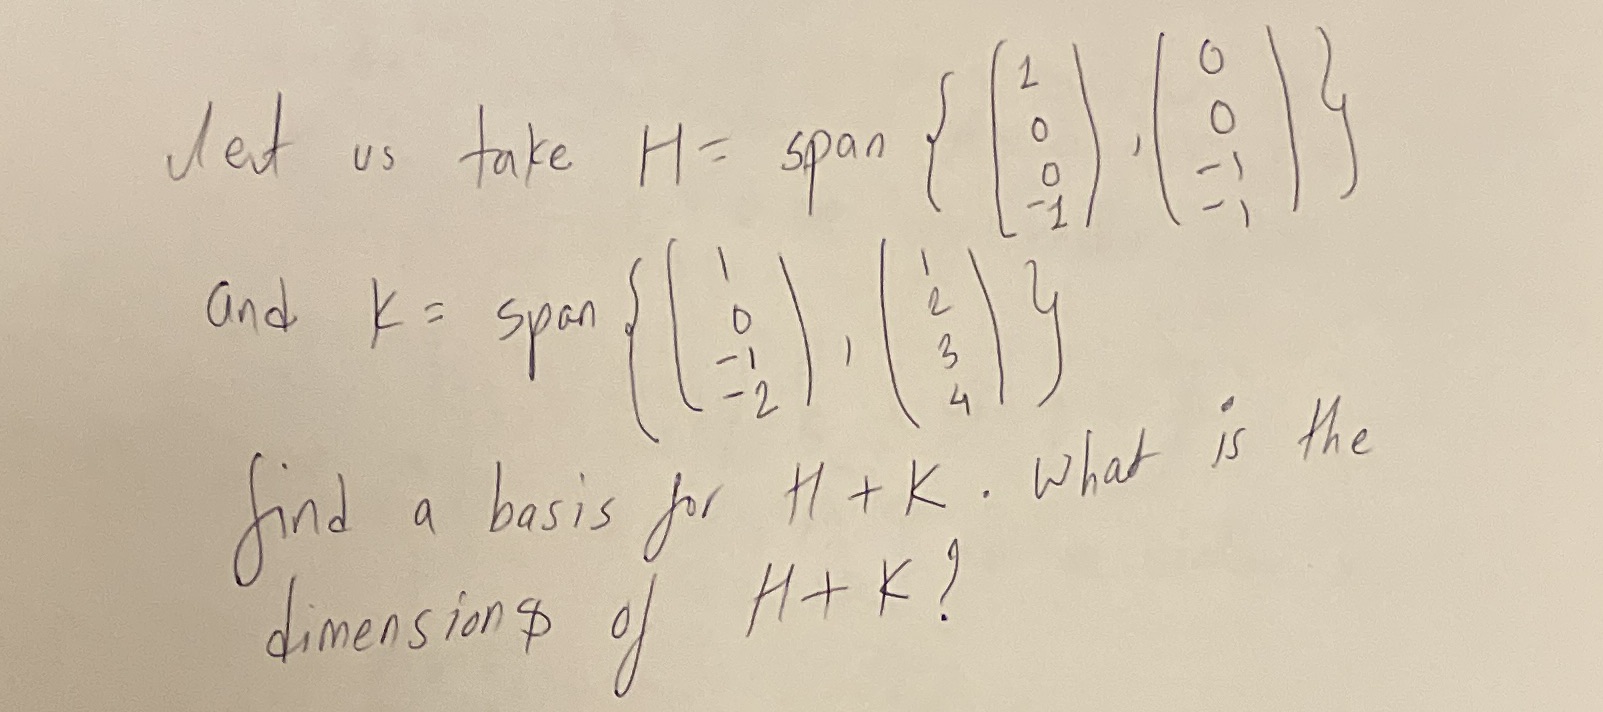 let us take H = span { (1 0 0 -1), (0 0 -1 -1) }
and K = span { (1 0 -1 -2), (1 2 3 4) }
find a basis for H + K. What is the
dimension of H + K?